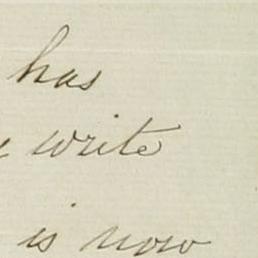 has
write
is now